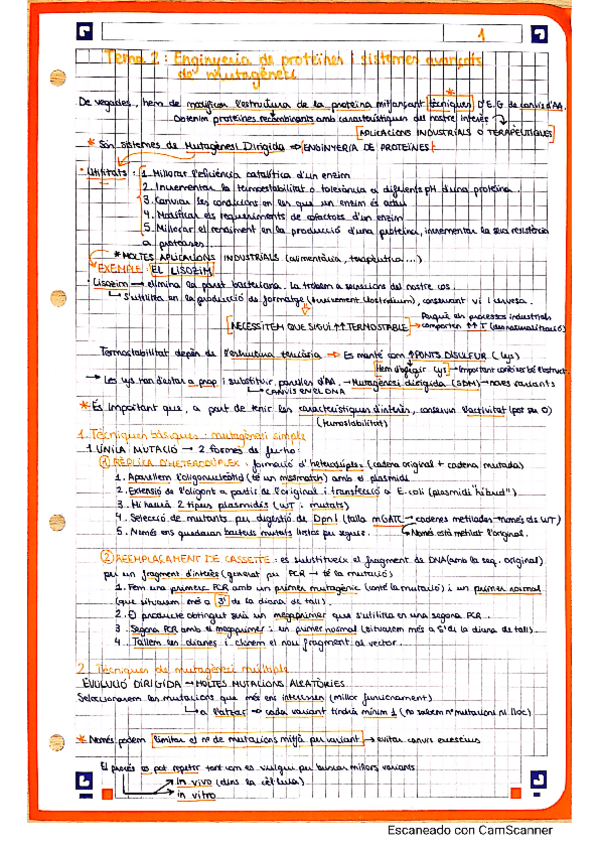 1
Tema 2: Enginyeria de proteïnes i sistemes avançats
de mutagènesi
De vegades, hem de modificar l'estructura de la proteïna mitjançant tècniques D'E.G de canvis d'AA.
Obtenim proteïnes recombinants amb característiques del nostre interès
APLICACIONS INDUSTRIALS O TERAPÈUTIQUES
* Són sistemes de Mutagènesi Dirigida → ENGINYERIA DE PROTEÏNES
· Utilitats: 1. Millorar l'eficiència catalítica d'un enzim
2. Incrementar la termoestabilitat o tolerància a diferents pH d'una proteïna.
3. Canviar les condicions en les que un enzim és actiu
4. Modificar els requeriments de cofactors d'un enzim
5. Millorar el rendiment en la producció d'una proteïna, incrementar la seva resistència
a proteases...
* MOLTES APLICACIONS INDUSTRIALS (alimentària, terapèutica...)
EXEMPLE: EL LISOZIM
· Lisozim → elimina la paret bacteriana. La trobem a secrecions del nostre cos.
↳ s'utilitza en la producció de formatge ( Clostridium), conservant vi i cervesa.
NECESSITEM QUE SIGUI ↑↑ TERMOSTABLE → Perquè els processos industrials
comporten ↑↑ T (desnaturalització)
Termostabilitat depèn de l'estructura terciària → Es manté com ↑ PONTS DISULFUR (Lys)
Hem d'afegir Lys → important conèixer bé l'estruct.
→ Les Lys han d'estar a prop i substituir parelles d'AA. → Mutagènesi dirigida (SDM) → noves variants
↳ CANVIS EN EL DNA
* És important que, a part de tenir les característiques d'interès, conservin l'activitat (pot ser 0)
(termostabilitat)
1. Tècniques bàsiques: mutagènesi simple
1 ÚNICA MUTACIÓ → 2 formes de fer-ho:
① RÈPLICA D'HETERODÚPLEX: formació d'heterodúplex (cadena original + cadena mutada)
1. Aparellem l'oligonucleòtid (té un mismatch) amb el plasmidi
2. Extensió de l'oligont a partir de l'original i transfecció a E. coli (plasmidi "híbrid")
3. Hi haurà 2 tipus plasmidis (WT i mutats)
4. Selecció de mutants per digestió de DpnI (talla mGATC → cadenes metilades → només els WT)
5. Només ens quedaran bacteris mutats llestos per seguir. ↳ Només està metilat l'original.
② REEMPLAÇAMENT DE CASSETTE: es substitueix el fragment de DNA (amb la seq. original)
per un fragment d'interès (generat per PCR → té la mutació)
1. Fem una primera PCR amb un primer mutagènic (conté la mutació) i un primer normal
(que situarem més a 3' de la diana de tall).
2. El producte obtingut serà un megaprimer que s'utilitza en una segona PCR.
3. Segona PCR amb el megaprimer i un primer normal (situarem més a 5' de la diana de tall).
4. Tallem les dianes i clonem el nou fragment al vector.
2. Tècniques de mutagènesi múltiple
EVOLUCIÓ DIRIGIDA → MOLTES MUTACIONS ALEATÒRIES
Seleccionarem les mutacions que més ens interessin (millor funcionament)
↳ a l'atzar → cada variant tindrà mínim 1 (no sabem nº mutacions ni lloc)
* Només podem limitar el nº de mutacions mitjà per variant → evitar canvis excessius
El procés es pot repetir tant com es vulgui per buscar millors variants
→ in vivo (dins la cèl·lula)
→ in vitro
Escaneado con CamScanner